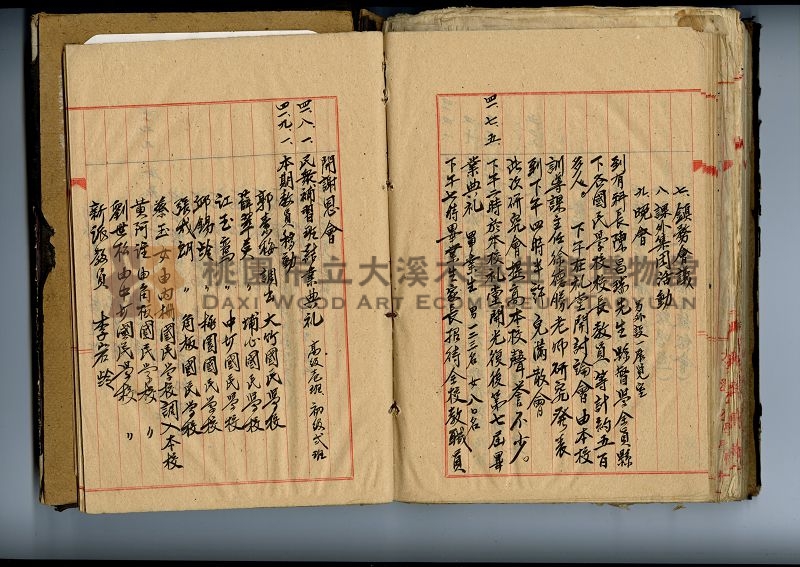 七、鎮務会議
八、課外集团活動
九、晚會　另外設一展覽室
到有科長陳昌瑞先生縣督學全員縣
下各國民學校校長教員等計約五百
多人。下午在礼堂開討論會由本校
訓導課主任徐維勝老師研究發表
到下午四時半許充滿散會
此次研究會提高本校聲誉不少。
四一、七、五、下午二時於本校礼堂開光復後第七屆畢
業典礼　畢業生　男一一三名　女八〇名
下午六時畢業生家長招待全校教職員
開謝恩會
四一、八、一、民衆補習班結業典礼　高級壱班、初級弍班
四一、九、一、本期教員移動
郭素梅　調出　大竹國民學校
薛翠美　〃　埔心國民學校
江玉鶯　〃　中圳國民學校
邱錫 〃　極國國民學校
張我朝　〃　角板國民學校
蔡玉女由內柵國民學校調入本校
黄阿 由角板國民學校　〃
劉世 由中圳國民學校　〃
新派教員　李宏齡
桃園市立大溪木藝生態博物館
DAXI WOOD ART ECOMUSEUM, TAOYUAN